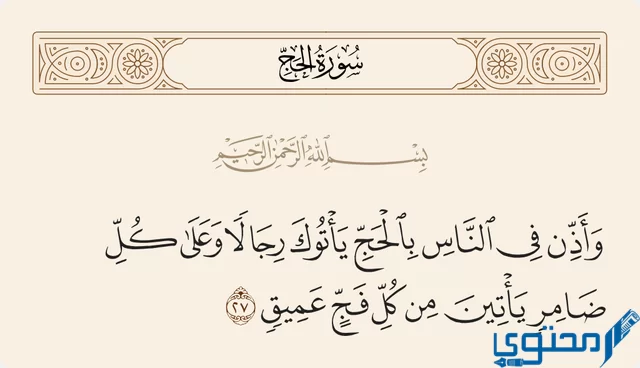 سُورَةُ الحَجِّ
بِسْمِ ٱللَّهِ ٱلرَّحْمَٰنِ ٱلرَّحِيمِ
وَأَذِّن فِي ٱلنَّاسِ بِٱلْحَجِّ يَأْتُوكَ رِجَالًا وَعَلَىٰ كُلِّ
ضَامِرٍ يَأْتِينَ مِن كُلِّ فَجٍّ عَمِيقٍ ٢٧
محتوى